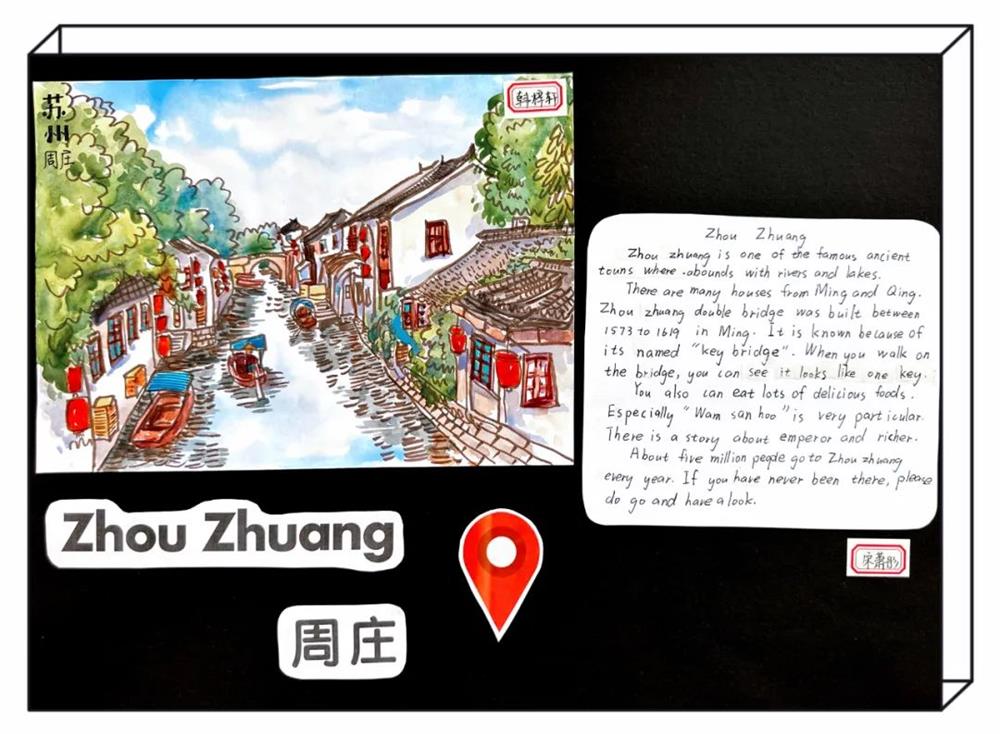 苏
州
周庄
Zhou Zhuang
Zhou zhuang is one of the famous ancient
touns where .abounds with rivers and lakes.
There are many houses from Ming and Qing.
Zhou zhuang double bridge was built between
1573 to 1619 in Ming. It is known because of
its named "key bridge". When you walk on
the bridge, you can see it looks like one key.
You also can eat lots of delicious foods.
Especially "Wam san hoo" is very particular.
There is a story about emperor and richer.
About five million people go to Zhou zhuang
every year. If you have never been there, please
do go and have a look.
Zhou Zhuang
周庄